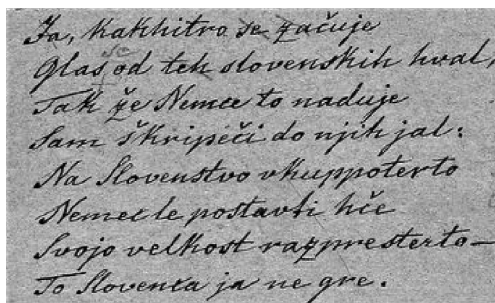 Ja, kakhitro se začuje
Glas od teh slovenskih hval,
Tak že Nemce to naduje
Sam škripéči do njih jal:
Na Slovenstvo vkuppoterto
Nemec le postavti hče
Svojo velkost razpresterto—
To Slovenca ja ne gre.